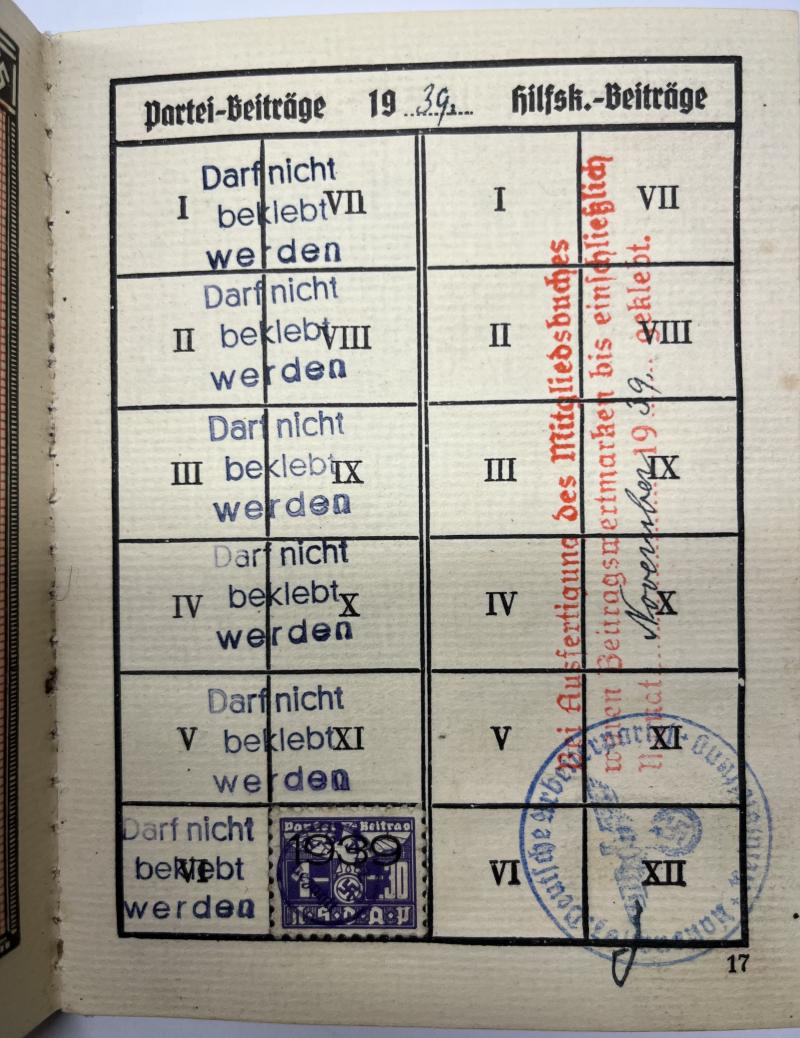 Partei-Beiträge 19 39. Hilfsk.-Beiträge
I VII I VII
Darf nicht
beklebt
werden
II VIII II VIII
Darf nicht
beklebt
werden
III IX III IX
Darf nicht
beklebt
werden
IV X IV X
Darf nicht
beklebt
werden
V XI V XI
Darf nicht
beklebt
werden
VI VI XII
Darf nicht
beklebt
werden
Partei-Beitrag
1939
1.30
N.S.D.A.P
Bei Ausfertigung des Mitgliedsbuches
waren Beitragswertmarken bis einschließlich
Monat November 19 39. geklebt.
Deutsche Arbeiterpartei
17